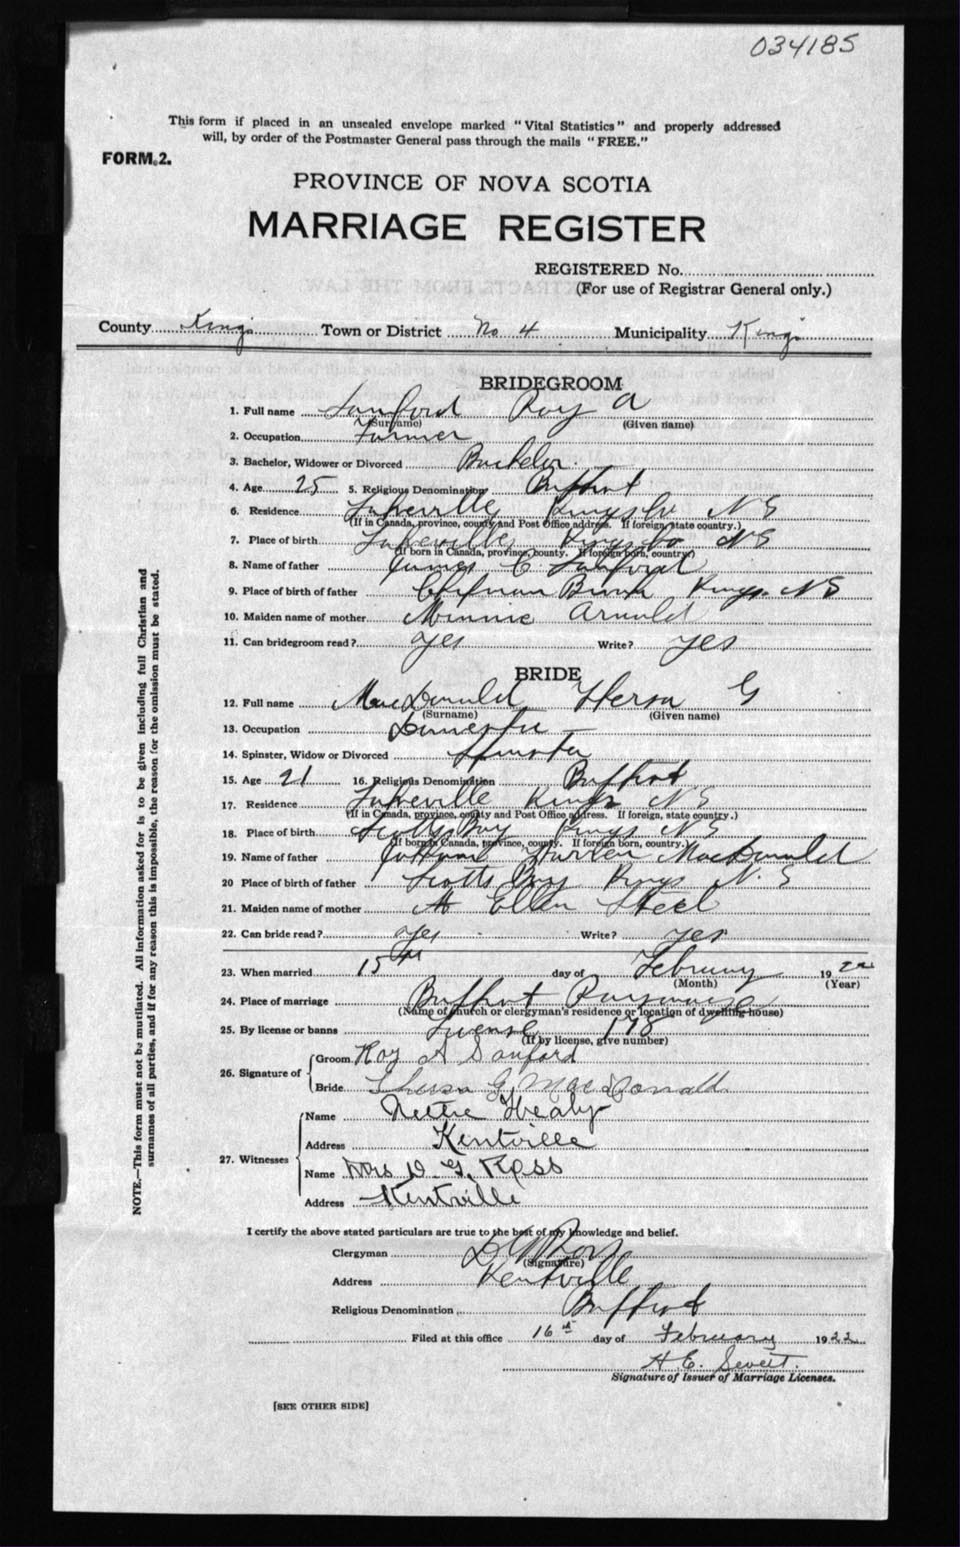 034185
This form if placed in an unsealed envelope marked "Vital Statistics" and properly addressed
will, by order of the Postmaster General pass through the mails "FREE."
FORM 2.
PROVINCE OF NOVA SCOTIA
MARRIAGE REGISTER
REGISTERED No.
(For use of Registrar General only.)
County Kings Town or District No 4 Municipality Kings
BRIDEGROOM
1. Full name Sanford Roy A
(Surname) (Given name)
2. Occupation Farmer
3. Bachelor, Widower or Divorced Bachelor
4. Age 25 5. Religious Denomination Baptist
6. Residence Lakeville Kings Co NS
(If in Canada, province, county and Post Office address. If foreign, state country.)
7. Place of birth Lakeville Kings Co NS
(If born in Canada, province, county. If foreign born, country)
8. Name of father James C. Sanford
9. Place of birth of father Chipman Brook Kings NS
10. Maiden name of mother Minnie Arnold
11. Can bridegroom read? yes Write? yes
BRIDE
12. Full name MacDonald G
(Surname) (Given name)
13. Occupation Domestic
14. Spinster, Widow or Divorced Spinster
15. Age 21 16. Religious Denomination Baptist
17. Residence Lakeville Kings NS
(If in Canada, province, county and Post Office address. If foreign, state country.)
18. Place of birth Scotts Bay Kings NS
(If born in Canada, province, county. If foreign born, country.)
19. Name of father MacDonald
20 Place of birth of father Scotts Bay Kings N.S
21. Maiden name of mother Ellen Steel
22. Can bride read? yes Write? yes
23. When married 15th day of February 1922
(Month) (Year)
24. Place of marriage Baptist Parsonage
(Name of church or clergyman's residence or location of dwelling house)
25. By license or banns License 178
(If by license, give number)
26. Signature of
Groom Roy A Sanford
Bride Theresa G. MacDonald
27. Witnesses
Name Nettie Healy
Address Kentville
Name Mrs D. G. Ross
Address Kentville
I certify the above stated particulars are true to the best of my knowledge and belief.
Clergyman
(Signature)
Address Kentville
Religious Denomination Baptist
Filed at this office 16th day of February 1922
H. E.
Signature of Issuer of Marriage Licenses.
[SEE OTHER SIDE]
NOTE.—This form must not be mutilated. All information asked for is to be given including full Christian and
surnames of all parties, and if for any reason this is impossible, the reason for the omission must be stated.